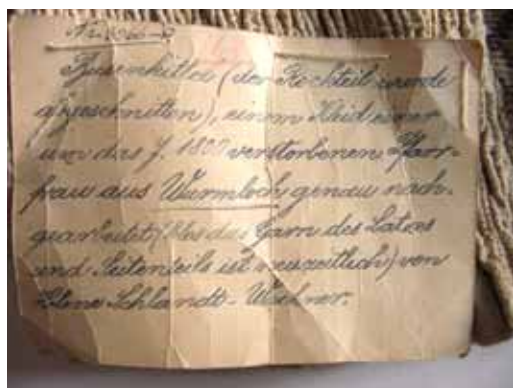 Nr.
Busenkittel (der Rockteil wurde
abgeschnitten), einem Kleid einer
um das J. 1800 verstorbenen Pfarr-
frau aus Wurmloch genau nach-
gearbeitet (blos das Garn des Latzes
und Seitenteils ist neuzeitlich) von
Schlandt-